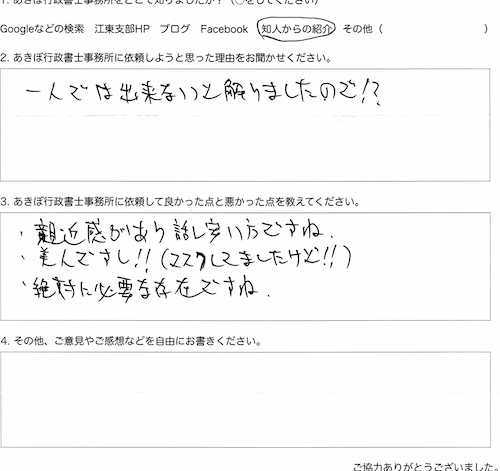 1. あきぼ行政書士事務所をどこで知りましたか？（○をしてください）
Googleなどの検索　江東支部HP　ブログ　Facebook　知人からの紹介　その他（　　　　　　　　）
2. あきぼ行政書士事務所に依頼しようと思った理由をお聞かせください。
一人では出来ないと解りましたので!?
3. あきぼ行政書士事務所に依頼して良かった点と悪かった点を教えてください。
・親近感があり話し安い方ですね.
・美人ですし!!(マスクしてましたけど!!)
・絶対に必要な存在ですね.
4. その他、ご意見やご感想などを自由にお書きください。
ご協力ありがとうございました。